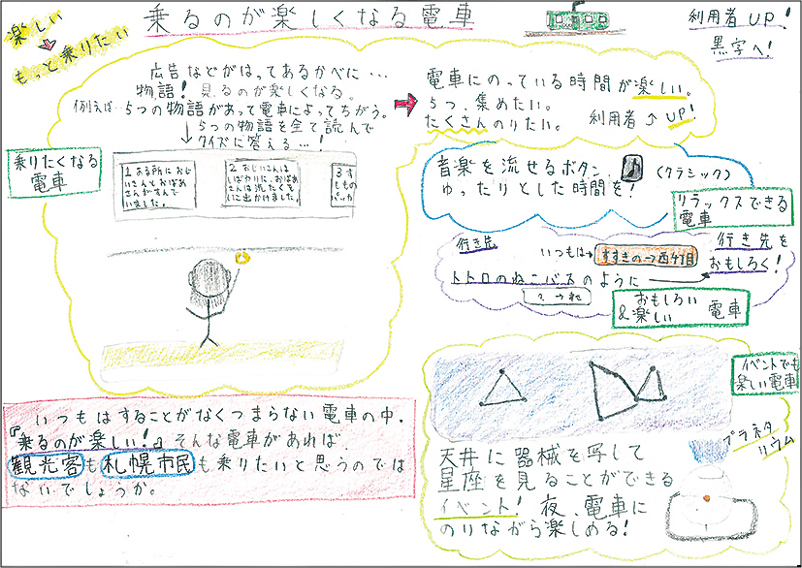 乗るのが楽しくなる電車
楽しい
もっと乗りたい
利用者 UP!
黒字へ!
広告などがはってあるかべに…
物語! 見るのが楽しくなる。
例えば…5つの物語があって電車によってちがう。
5つの物語を全て読んで
クイズに答える…!
乗りたくなる
電車
1 ある所におじ
いさんとおばあ
さんがすんで
いました。
2 おじいさんは
しばかりに、おばあ
さんは洗たくを
しに出かけました。
電車にのっている時間が楽しい。
5つ、集めたい。
たくさんのりたい。
利用者↑UP!
音楽を流せるボタン ♪ (クラシック)
ゆったりとした時間を!
リラックスできる
電車
行き先
いつもは→ すすきの→西4丁目
行き先を
おもしろく!
トトロのねこバスのように
おもしろい
&楽しい 電車
イベントでも
楽しい電車
プラネタ
リウム
天井に器械を写して
星座を見ることができる
イベント! 夜、電車に
のりながら楽しめる!
いつもはすることがなくつまらない電車の中。
『乗るのが楽しい!』そんな電車があれば、
観光客も札幌市民も乗りたいと思うのでは
ないでしょうか。